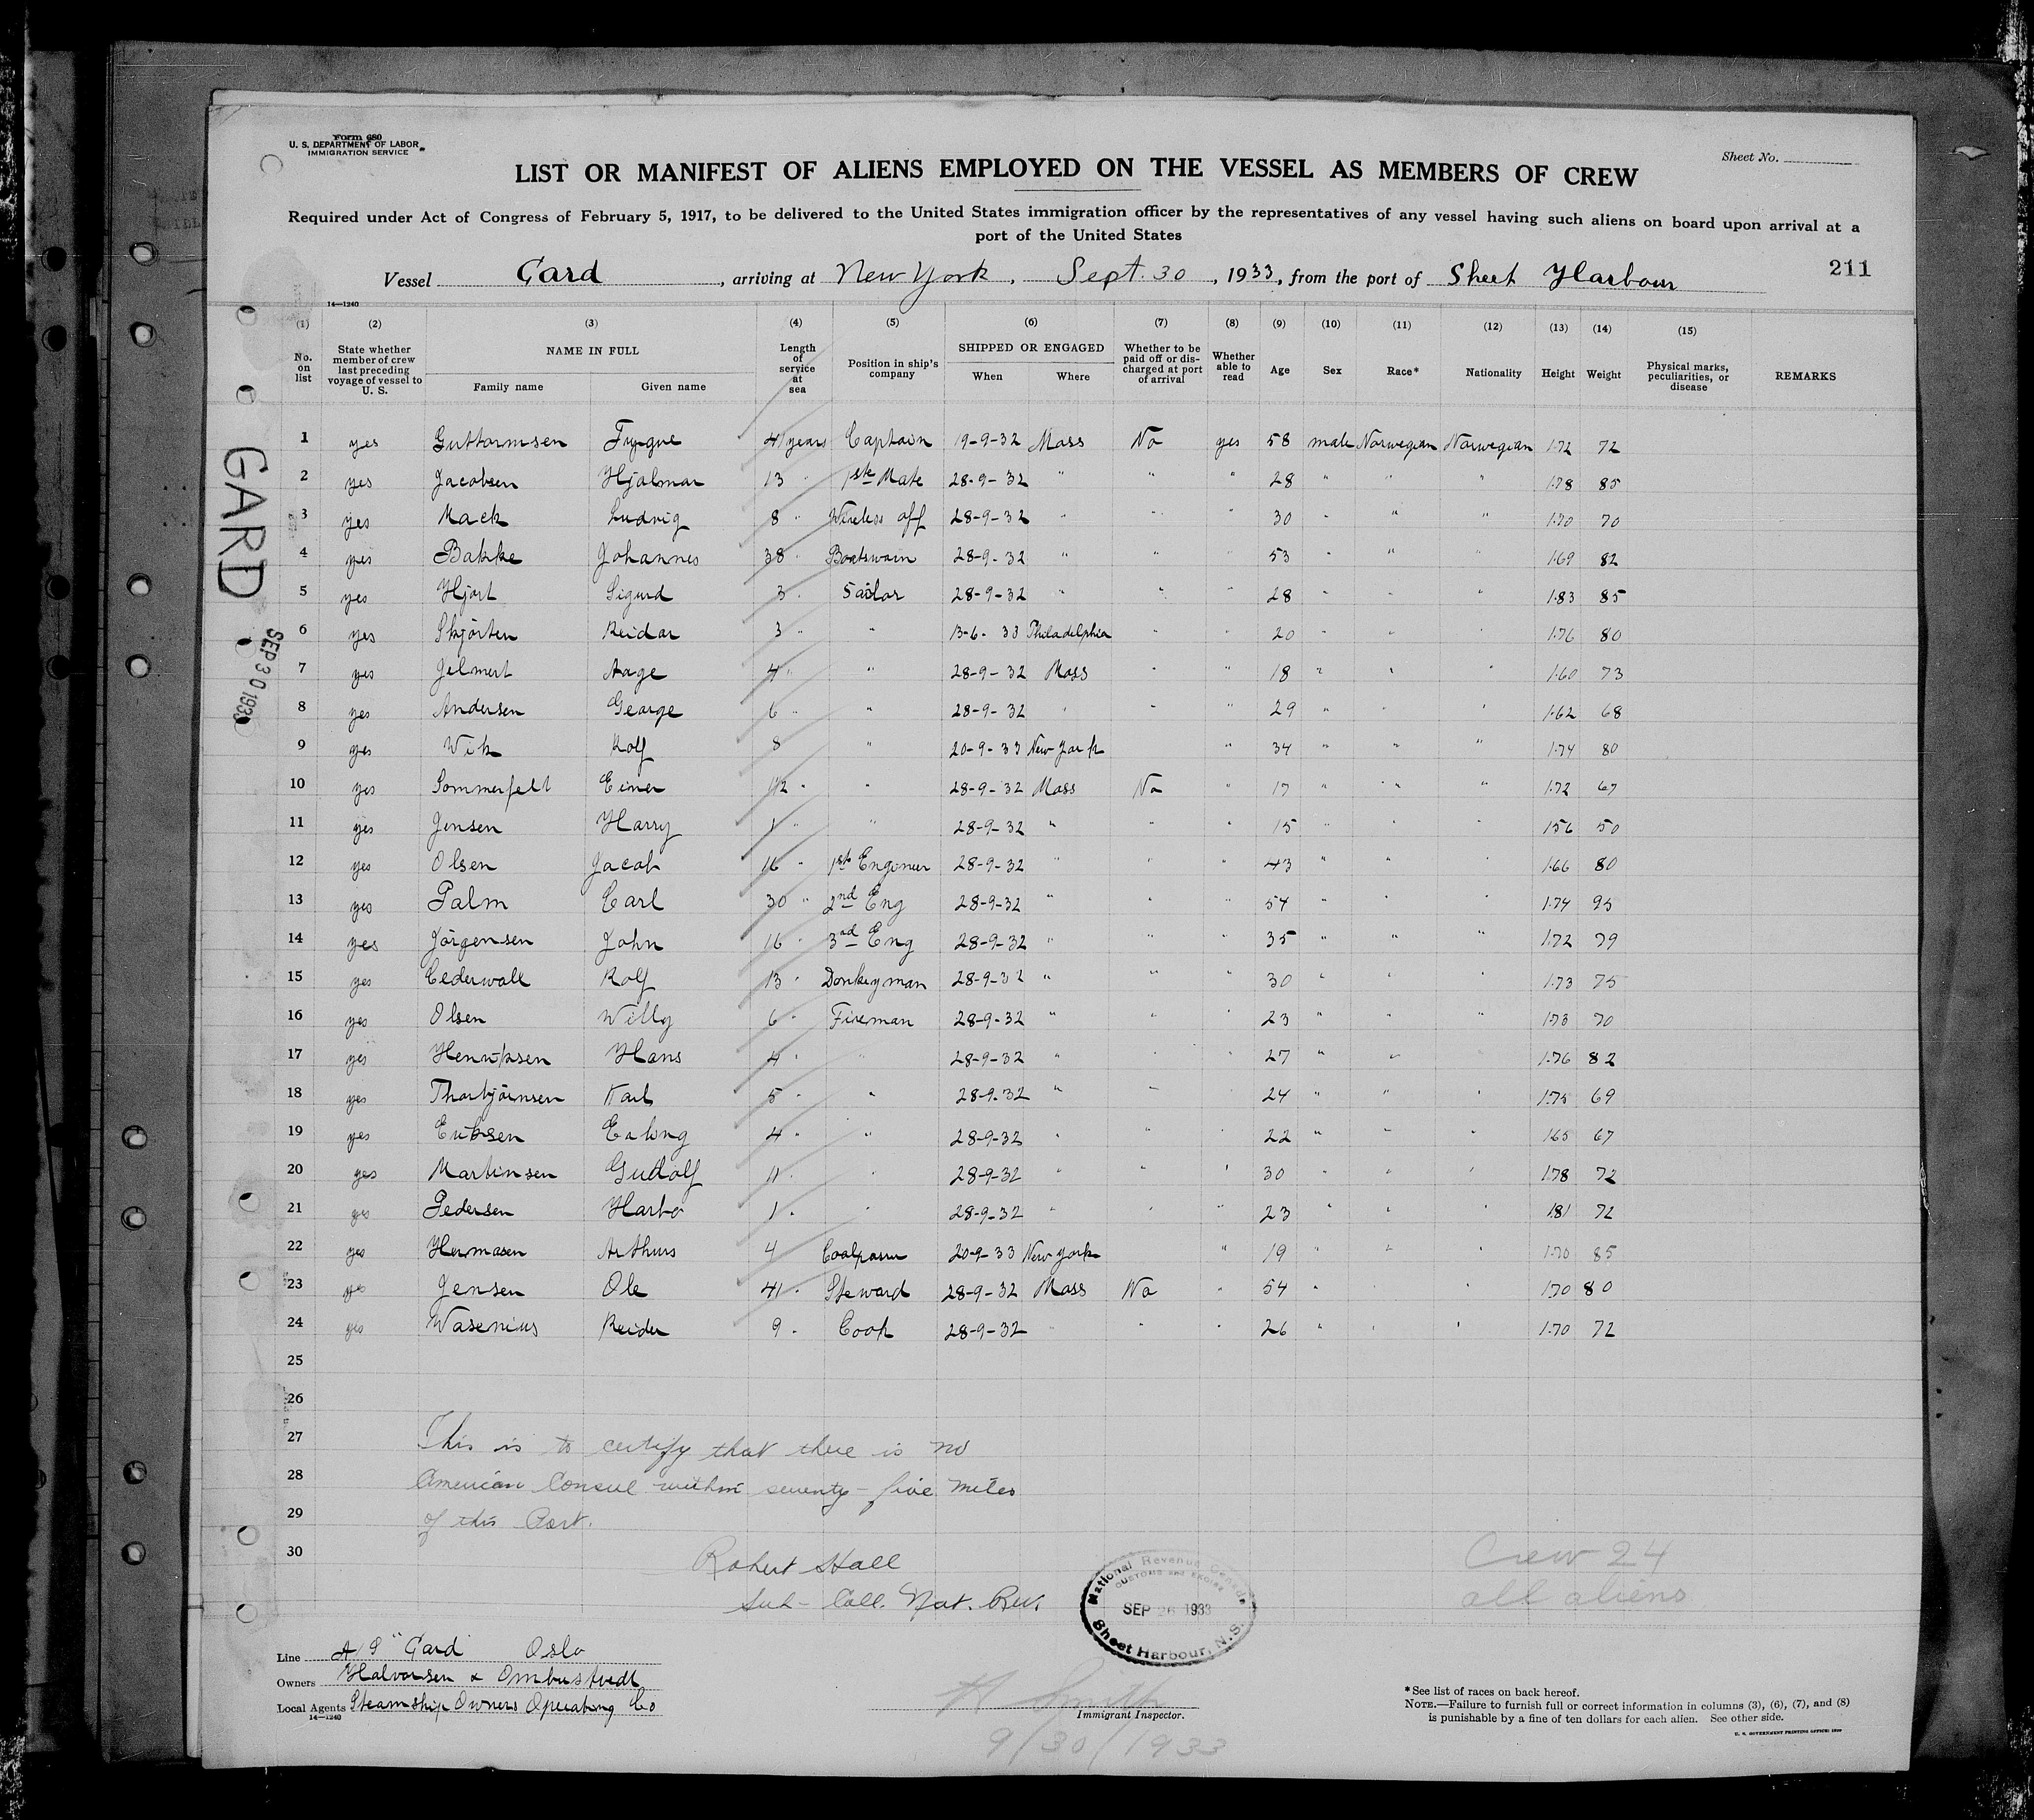 Form 680
U. S. DEPARTMENT OF LABOR
IMMIGRATION SERVICE
Sheet No.
LIST OR MANIFEST OF ALIENS EMPLOYED ON THE VESSEL AS MEMBERS OF CREW
Required under Act of Congress of February 5, 1917, to be delivered to the United States immigration officer by the representatives of any vessel having such aliens on board upon arrival at a
port of the United States
Vessel Gard, arriving at New York, Sept. 30, 1933, from the port of Sheet Harbour 211
14—1240
(1) (2) (3) (4) (5) (6) (7) (8) (9) (10) (11) (12) (13) (14) (15)
No. on list State whether member of crew last preceding voyage of vessel to U. S. NAME IN FULL Family name Given name Length of service at sea Position in ship's company SHIPPED OR ENGAGED When Where Whether to be paid off or discharged at port of arrival Whether able to read Age Sex Race* Nationality Height Weight Physical marks, peculiarities, or disease REMARKS
1 yes Guttormsen Trygve 41 years Captain 19-9-32 Mass No yes 58 male Norwegian Norwegian 1.72 72
2 yes Jacobsen Hjalmar 13 " 1st Mate 28-9-32 " " " 28 " " " 1.78 85
3 yes Mack Ludvig 8 " Wireless off 28-9-32 " " " 30 " " " 1.70 70
4 yes Bakke Johannes 38 " Boatswain 28-9-32 " " " 53 " " " 1.69 82
5 yes Hjort Sigurd 3 " Sailor 28-9-32 " " " 28 " " " 1.83 85
6 yes Skjorten Reidar 3 " " 13-6-33 Philadelphia " " 20 " " " 1.76 80
7 yes Jelmert Aage 4 " " 28-9-32 Mass " " 18 " " " 1.60 73
8 yes Andersen George 6 " " 28-9-32 " " " 29 " " " 1.62 68
9 yes Wik Rolf 8 " 20-9-33 New York " 34 " " " 1.74 80
10 yes Sommerfelt Einer 1 1/2 " " 28-9-32 Mass No " 17 " " " 1.72 67
11 yes Jensen Harry 1 " " 28-9-32 " " " 15 " " " 1.56 50
12 yes Olsen Jacob 16 " 1st Engineer 28-9-32 " " " 43 " " " 1.66 80
13 yes Palm Carl 30 " 2nd Eng 28-9-32 " " " 54 " " " 1.74 95
14 yes Jörgensen John 16 " 3rd Eng 28-9-32 " " " 35 " " " 1.72 79
15 yes Cederwall Rolf 13 " Donkeyman 28-9-32 " " " 30 " " " 1.73 75
16 yes Olsen Willy 6 " Fireman 28-9-32 " " " 23 " " " 1.73 70
17 yes Henriksen Hans 4 " " 28-9-32 " " " 27 " " " 1.76 82
18 yes Thorbjörnsen Karl 5 " " 28-9-32 " " " 24 " " " 1.75 69
19 yes Eriksen 4 " " 28-9-32 " " " 22 " " " 1.65 67
20 yes Martinsen Gudolf 11 " " 28-9-32 " " " 30 " " " 1.78 72
21 yes Pedersen 1 " " 28-9-32 " " " 23 " " " 1.81 72
22 yes Hermasen Arthurs 4 20-9-33 New York " 19 " " " 1.70 85
23 yes Jensen Ole 41 " Steward 28-9-32 Mass No " 54 " " " 1.70 80
24 yes Wasenius Reider 9 " Cook 28-9-32 " " " 26 " " " 1.70 72
25
26
27 This is to certify that there is no
28 American Consul within seventy-five miles
29 of this Port.
30
Robert Hall
Sub-Coll. Nat. Rev.
National Revenue Canada
CUSTOMS AND EXCISE
SEP 26 1933
Sheet Harbour, N.S.
Crew 24
all aliens
Line A/S "Gard" Oslo
Owners Halvorsen &
Local Agents Steamship Owners Operating Co
14—1240
Immigrant Inspector.
9/30/1933
*See list of races on back hereof.
NOTE.—Failure to furnish full or correct information in columns (3), (6), (7), and (8)
is punishable by a fine of ten dollars for each alien. See other side.
U. S. GOVERNMENT PRINTING OFFICE
GARD
SEP 30 1933